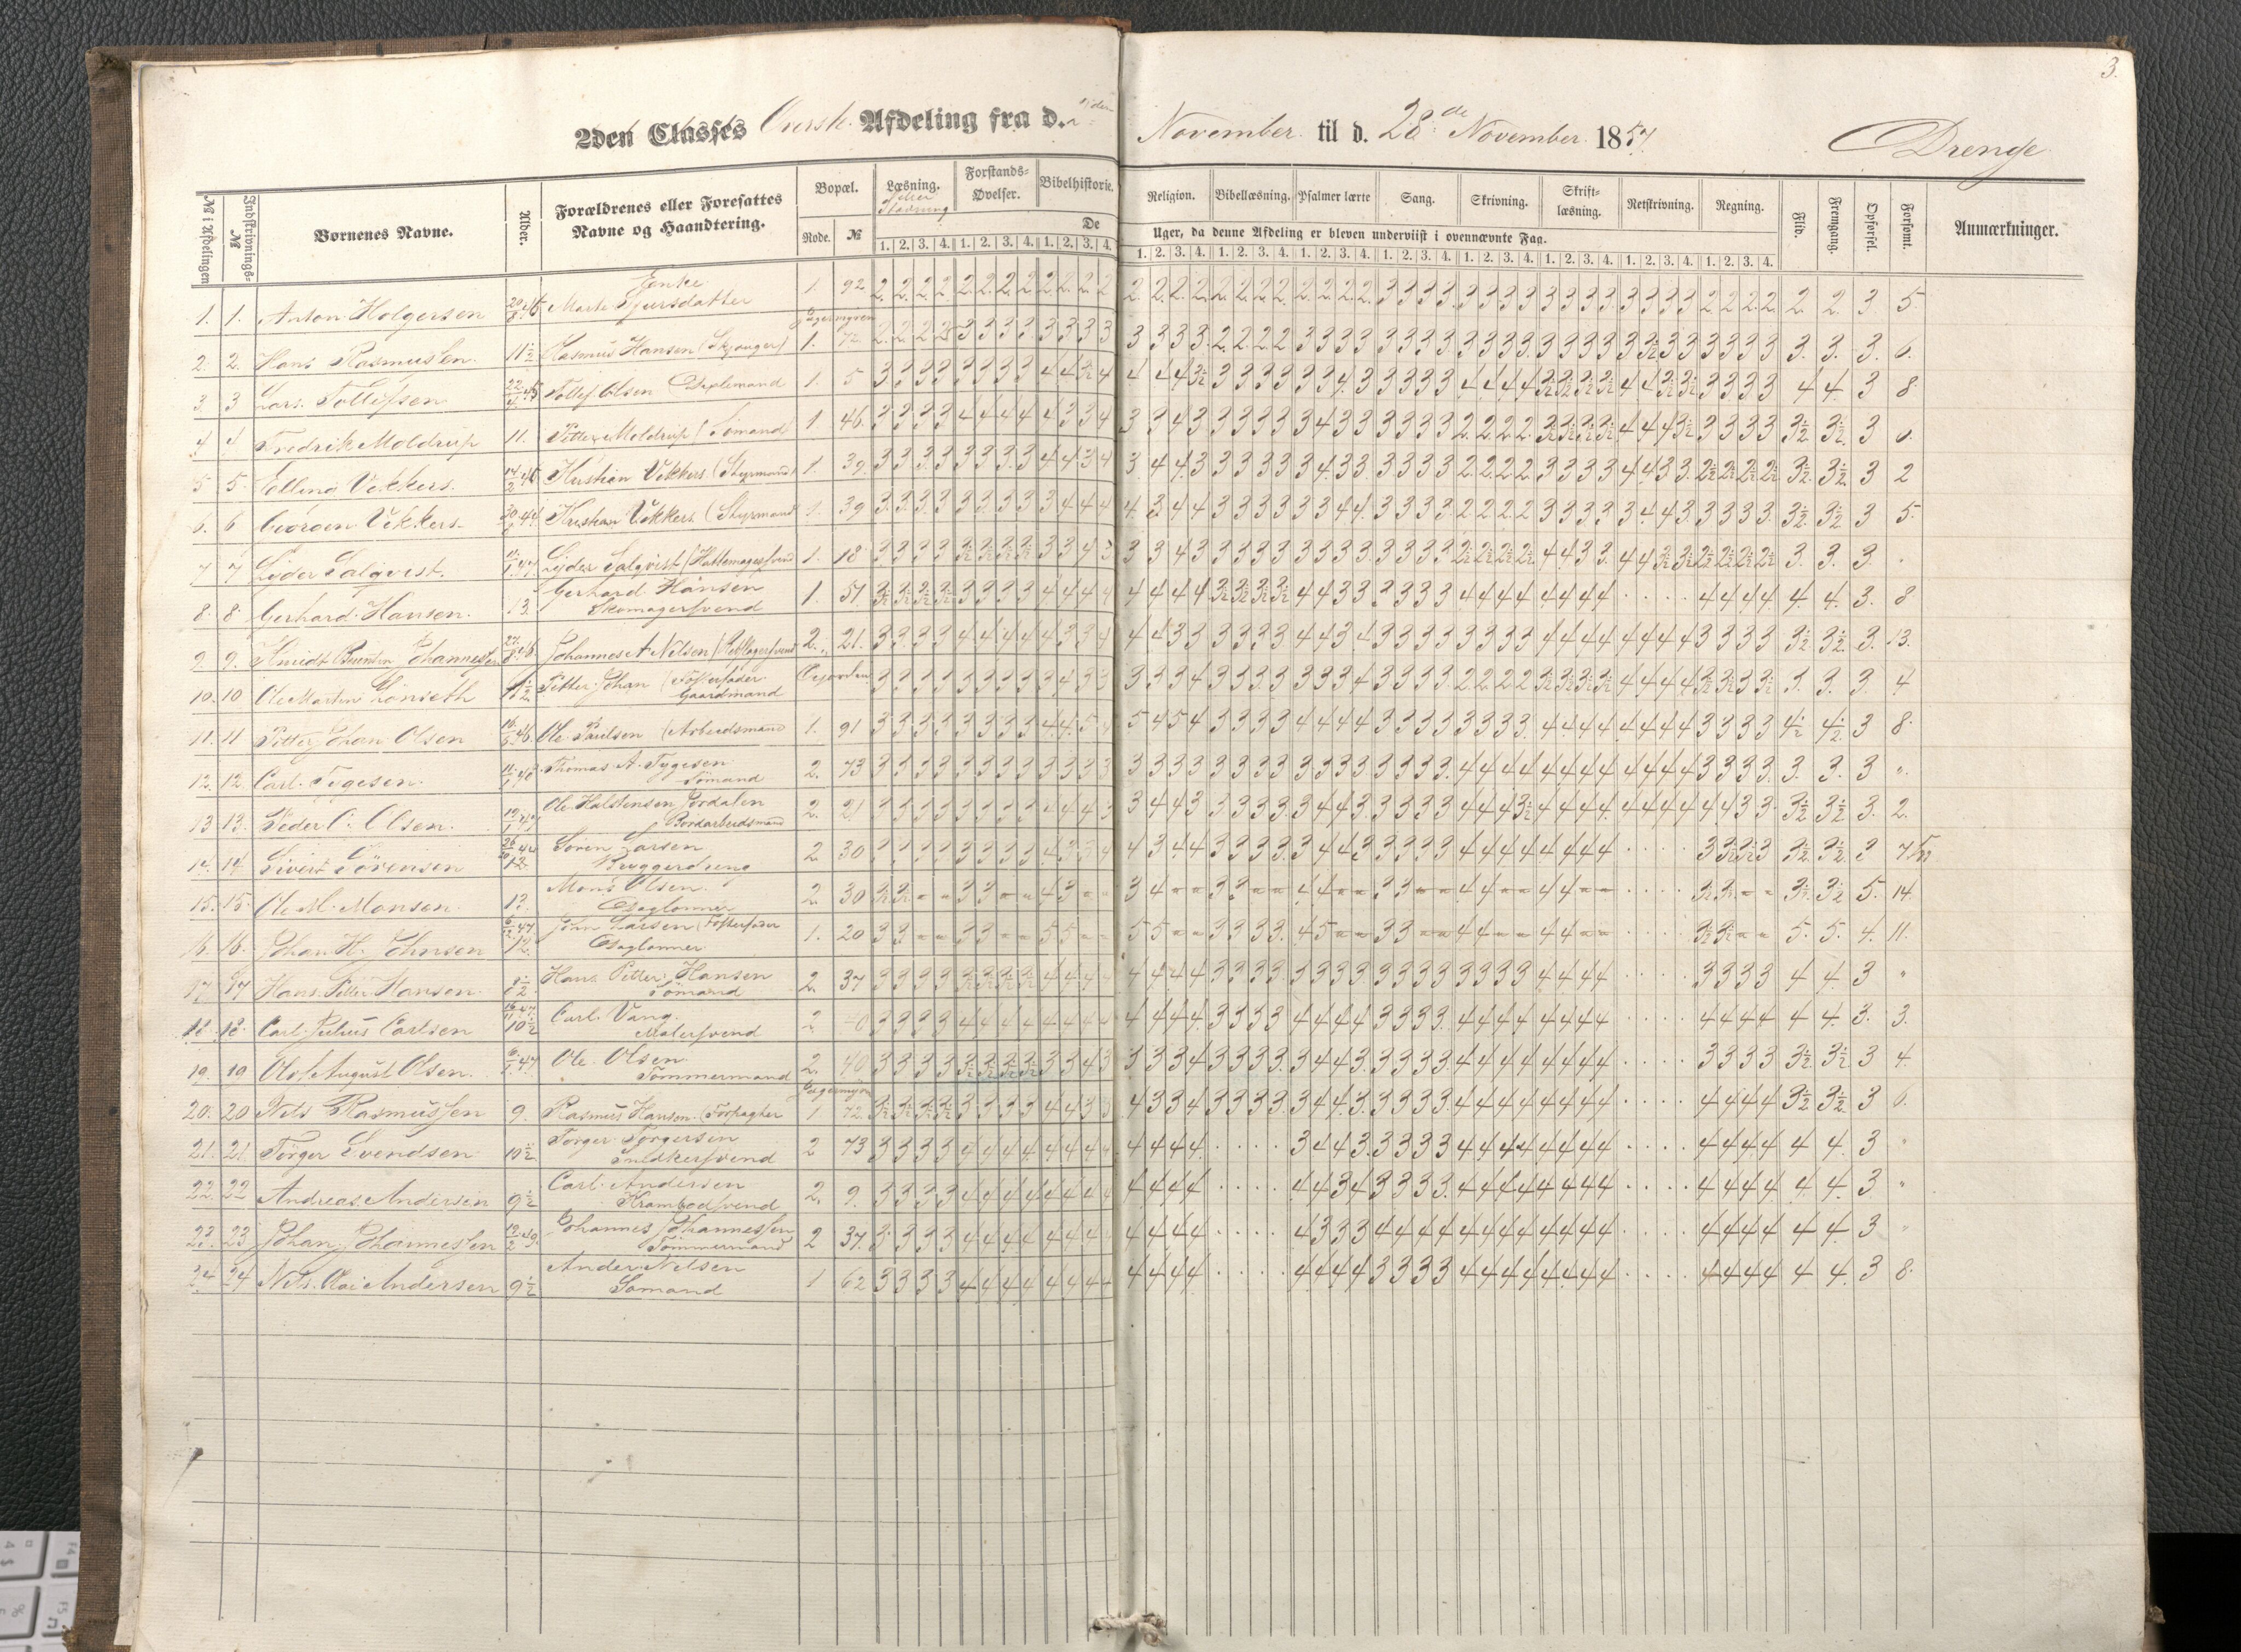 3.
2den Classes Øverste Afdeling fra d. 2den November til d. 28de November 1857 Drenge
№ i Afdelingen
Indskrivnings- №
Børnenes Navne.
Alder.
Forældrenes eller Foresattes Navne og Haandtering.
Bopæl.
Rode. №
Læsning.
eller Stavning
Forstands- Øvelser.
Bibelhistorie.
Religion. Bibellæsning. Psalmer lærte Sang. Skrivning. Skrift- læsning. Retskrivning. Regning.
Flid. Fremgang. Opførsel. Forsømt. Anmærkninger.
De Uger, da denne Afdeling er bleven underviist i ovennævnte Fag.
1. 2. 3. 4. 1. 2. 3. 4. 1. 2. 3. 4. 1. 2. 3. 4. 1. 2. 3. 4. 1. 2. 3. 4. 1. 2. 3. 4. 1. 2. 3. 4. 1. 2. 3. 4. 1. 2. 3. 4. 1. 2. 3. 4.
Enke
1. 1. Anton Holgersen Marte Sjursdatter 1. 92 2. 2. 2. 2 2. 2. 2. 2 2. 2. 2. 2 2. 2. 2. 2. 2. 2. 2. 2. 2. 2. 2. 2. 3 3 3 3. 3 3 3 3 3 3 3 3 3 3 3 3 2 2 2. 2. 2. 2. 3. 5.
2. 2. Hans Rasmussen 11½ Rasmus Hansen 1. 72 2. 2. 2. 2 3 3 3 3 3 3 3 3 3 3 3 3. 2. 2. 2. 2 3 3 3 3 3 3 3 3. 3 3 3 3. 3 3 3 3 3 3½ 3 3 3 3 3 3 3. 3. 3. 6.
3. 3 Lars Tollefsen Tollef Olsen 1. 5 3 3 3 3 3 3 3 3 4 4 3½ 4 4 4 4 3½ 3 3 3 3 3 3 4 3 3 3 3 3 4. 4. 4 4 3½ 3½ 3½ 3½ 4 4 3½ 3½ 3 3 3 3 4 4. 3 8
4. 4 Fredrik Moldrup 11. Petter Moldrup (Sømand) 1 46. 3 3 3 3 4 4 4 4 4 3 3 4 3 3 4 3 3 3 3 3 3 4 3 3 3 3 3 3 2. 2. 2. 2. 3½ 3½ 3½ 3½ 4 4 4 3½ 3 3 3 3 3½ 3½ 3 6.
5 5. Elling Vekkers. Kristian Vekkers (Styrmand) 1. 39. 3 3 3 3 3 3 3. 3 4 4 3 4 3 4 4 3 3 3 3 3 3 4 3 3 3 3 3 3 2. 2. 2. 2 3 3 3 3 4 4 3 3 2½ 2½ 2½ 2½ 3½ 3½ 3 2
6. 6 Georgen Vekkers Kristian Vekkers (Styrmand 1. 39 3. 3. 3. 3 3 3 3 3 3 4 4 4 4. 3 4 4 3 3 3 3 3 3 4 4. 3 3 3 3. 2. 2. 2. 2 3 3 3 3 3 4 4 3. 3 3 3 3. 3½ 3½ 3 5.
7 7 Lyder Salqvist. Lyder Salqvist 1. 18 3 3 3 3 3½ 3½ 3½ 3½ 3 3 4 3 3 3 4 3 3 3 3 3 3 3 3 3. 3 3 3 3 2½ 2½ 2½ 2½ 4 4 3 3. 4 4 3½ 3½ 2½ 2½ 2½ 2½ 3. 3. 3.
8. 8. Gerhard Hansen 13 Gerhard Hansen
Skomagersvend 1. 51 3½ 3½ 3½ 3½ 3 3 3 3 4 4 4 4 4 4 4 4 3½ 3½ 3½ 3½ 4 4 3 3 3 3 3 3 4 4 4 4 4 4 4 4 . . . . 4 4 4 4. 4. 4. 3. 8
9. 9. Johannes A. Nilsen 2. 21. 3 3 3 3 4 4 4 4 4 3 3 4 4 4 3 3 3 3 3 3 4 4 3 4 3 3 3 3 3 3 3 3 4 4 4 4 4 4 4 4 3 3 3 3 3½ 3½ 3. 13.
10. 10 Ole Martin Lønseth Petter Johan (Fosterfader
Gaardmand 3 3 3 3 3 3 3 3 3 4 3 3 3 3 3 4 3 3 3. 3 3 3 3 4 3 3 3 3 2. 2 2 2 3½ 3½ 3½ 3½ 4 4 4 4 3½ 3½ 3 3½ 3. 3. 3. 4
11. 11 Petter Johan Olsen Ole Paulsen (Arbeidsmand 1. 91 3 3 3 3 3 3 3 3 4. 4. 5 4 5 4 5 4 3 3 3 3 4 4 4 4 3 3 3 3 3 3 3 3. 4. 4. 4 4 4. 4. 4 4 3 3 3 3 4½ 4½ 3 8.
12. 12. Carl Tygesen. Thomas A. Tygesen
Sömand 2. 73 3 3 3 3 3 3 3 3 3 3 3 3 3 3 3 3 3 3 3 3 3 3 3 3 3 3 3 3. 4 4 4 4 4 4 4 4. 4 4 4 4 3 3 3 3. 3. 3. 3 ".
13 13. Peder C. Olsen. Ole Halstensen Jordalen
Bordarbeidsmand 2. 21 3 3 3 3 3 3 3 3 4 4 3 3 4 4 3 3 3 3 3. 3 4 4 3. 3 3 3 3 4 4 4 3½ 4 4 4 4. 4 4 4 4 4 4 3 3 3½ 3½ 3. 2.
14. 14 Sivert Sörensen 12 Sören Larsen
Bryggerdreng 2. 30 3 3 3 3 3 3 3 3 4 3 3 4 4 3 4 4 3 3 3 3 3 4 4 3 3 3 3 3 4 4 4 4 4 4 4 4 . . . . 3 3½ 3½ 3 3½ 3½ 3
15. 15. Ole M. Monsen 12. Mons Olsen.
Daglønner 2. 30 3½ 3½ = = 3 3 = = 4 3 = = 3 4 = = 3 3 = = 4 4 = = 3 3 = = 4 4 = = 4 4 = = . . . . 3½ 3½ = = 3½ 3½ 5. 14.
16. 16. Johan H. Johnsen 12. John Larsen (Fosterfader
Daglønner 1. 20 3 3 = = 3 3 = = 5 5 = = 5 5 = = 3 3 3 3. 4 5 = = 3 3 = = 4 4 = = 4 4 = = . . . . 3½ 3½ = = 5. 5. 4. 11.
17 17 Hans Petter Hansen Hans Petter Hansen
Sömand 2. 37 3 3 3 3 3½ 3½ 3½ 3½ 4 4 4 4 4 4 4 4 3 3 3 3 3 3 3 3 3 3 3 3 3 3 3 3 4 4 4 4 . . . . 3 3 3 3 4 4. 3 "
18. 18. Carl Julius Carlsen 10½ Carl Vang.
Malersvend 2. 3 3 3 3 4 4 4 4 4 4 4 4 4 4 4 4. 3 3 3 3 4 4 4 4 3 3 3 3. 4 4 4 4 4 4 4 4 . . . . 4 4 4 4 4 4. 3. 3.
19. 19 Olaf August Olsen. Ole Olsen.
Tømmermand 2. 40 3 3 3 3 3½ 3½ 3½ 3½ 3 3 4 3 3 3 3 4 3 3 3 3. 3 4 4 3. 3 3 3 3. 4 4 4 4 4 4 4 4 . . . . 3 3 3 3 3½ 3½ 3 4.
20. 20 Nils Rasmussen 9. Rasmus Hansen 1 72. 3½ 3½ 3½ 3½ 3 3 3 3 4 4 3 3 4 3 3 4 3 3 3 3. 3 4 4 3. 3 3 3 3. 4 4 4 4 4 4 4 4 . . . . 4 4 4 4 3½ 3½ 3 6.
21. 21 Törger Svendsen 10½ Torger Torgersen
Snedkersvend 2 73 3 3 3 3 4 4 4 4 4 4 4 4 4 4 4 4. . . . . 3 4 4 3. 3 3 3 3 4 4 4 4 4 4 4 4 . . . . 4 4 4 4 4 4. 3 "
22. 22 Andreas Andersen 9½ Carl Andersen
Krambodsvend 2. 9. 3 3 3 3 4 4 4 4. 4 4 4 4 4 4 4 4 . . . . 4 4 3 4 3 3 3 3. 4 4 4 4 4 4 4 4 . . . . 4 4 4 4 4. 4. 3 "
23. 23 Johan Johannessen Johannes Johannessen
Tømmermand 2 37. 3 3 3 3 4 4 4 4 4 4 4 4 4 4 4 4 . . . . 4 3 3 3 4 4 4 4 4 4 4 4 4 4 4 4 . . . . 4 4 4 4 4 4. 3 "
24. 24 Nils Olai Andersen 9½ Anders Nilsen
Sømand 1 62 3 3 3 3 4 4 4 4 4 4 4 4 4 4 4 4 . . . . 4 4 4 4 3 3 3 3 4 4 4 4 4 4 4 4 . . . . 4 4 4 4 4 4. 3 8.